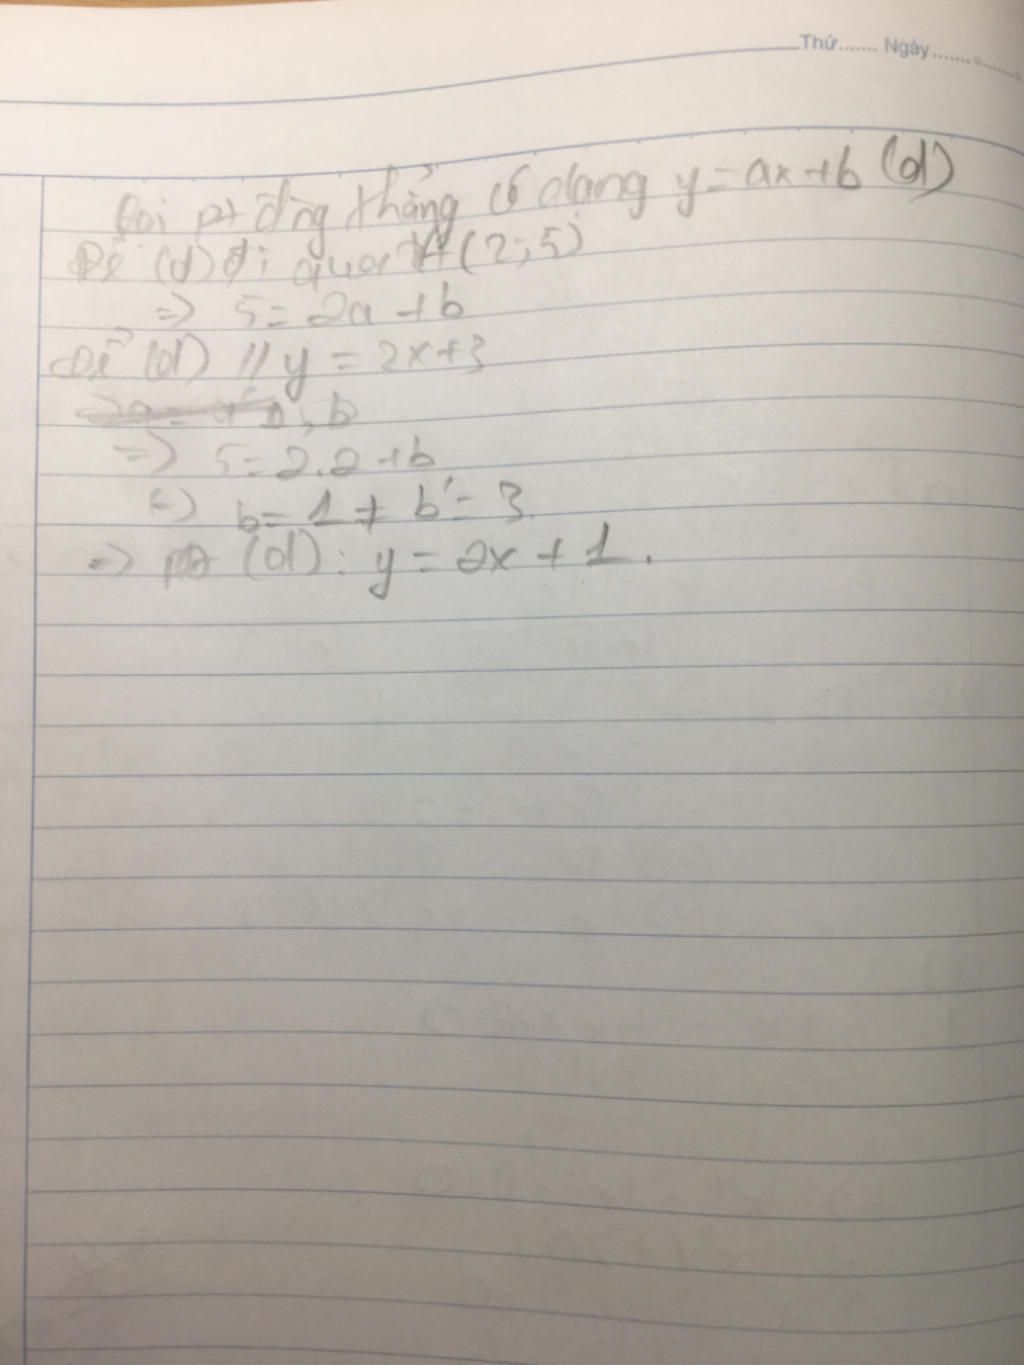 Thứ....... Ngày..............
Gọi pt đg thẳng có dạng y = ax + b (d)
Để (d) đi qua A (2; 5)
=> 5 = 2a + b
Để (d) // y = 2x + 3
; b
=> 5 = 2.2 + b
<=> b = 1 ≠ b' = 3.
=> pt (d): y = 2x + 1.